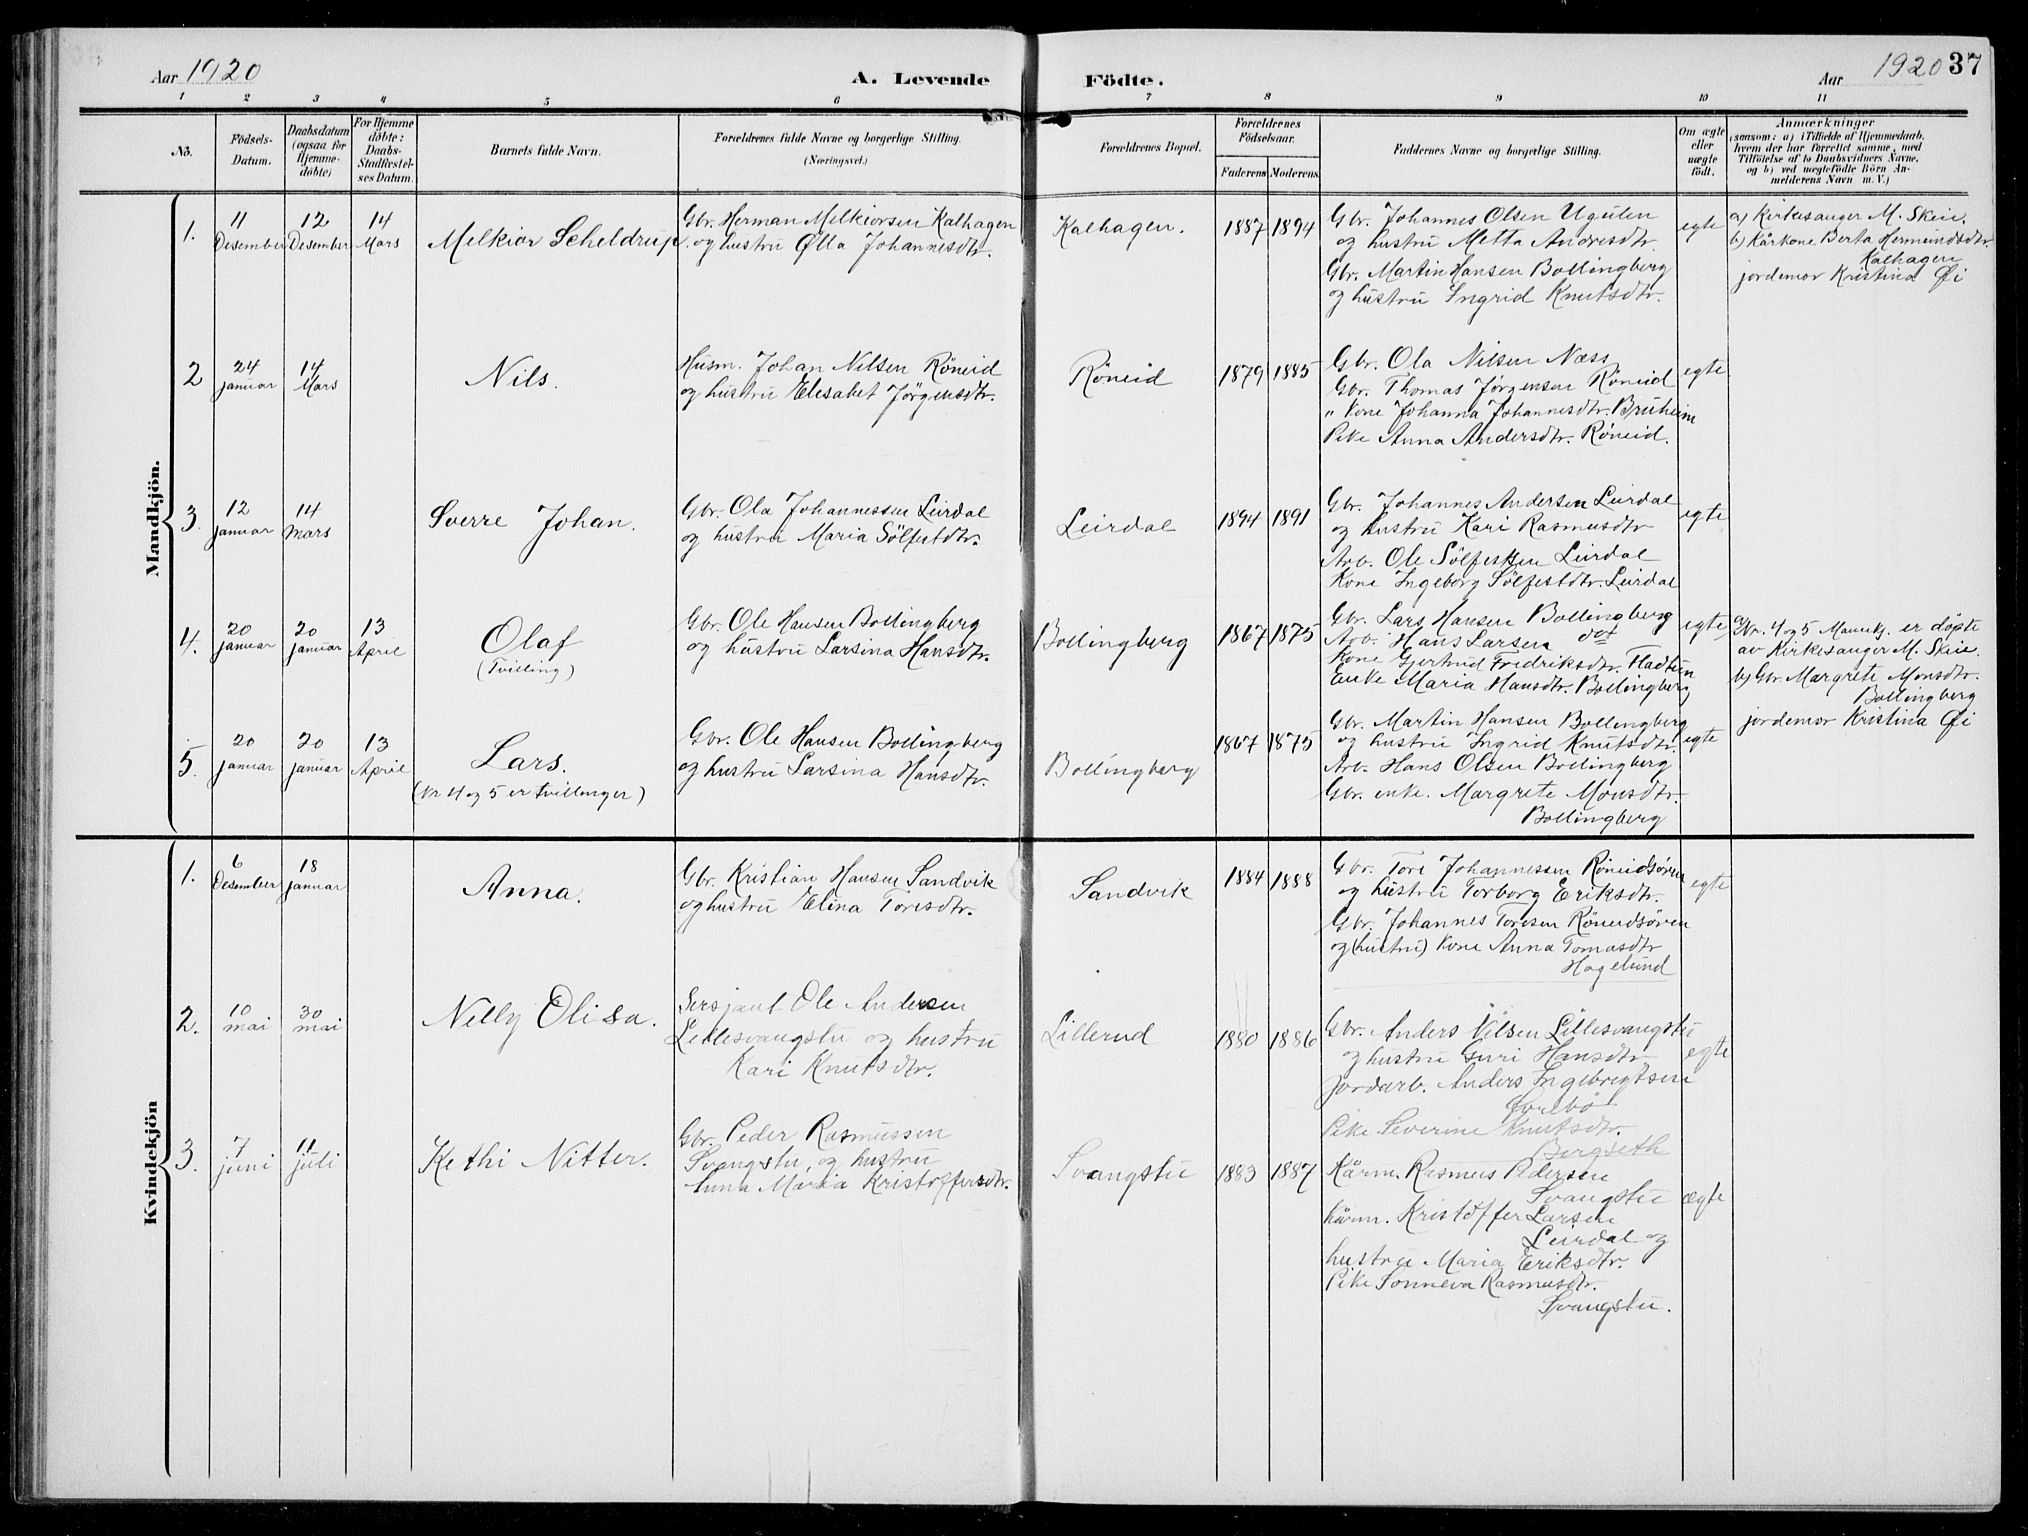 Aar 1920
A. Levende
Födte.
Aar 1920 37
1 2 3 4 5 6 7 8 9 10 11
No.
Födsels-
Datum.
Daabsdatum
(ogsaa for
Hjemme-
döbte)
For Hjemme
döbte:
Daabs-
Stadfæstel-
ses Datum.
Barnets fulde Navn.
Forældrenes fulde Navne og borgerlige Stilling.
(Næringsvei.)
Forældrenes Bopæl.
Forældrenes
Födselsaar.
Faderens Moderens
Faddernes Navne og borgerlige Stilling.
Om ægte
eller
uægte
födt.
Anmærkninger
(saasom: a) i Tilfælde af Hjemmedaab,
hvem der har forrettet samme, med
Tilföielse af to Daabsvidners Navne,
og b) ved uægtefödte Börn An-
melderens Navn m. V.)
Mandkjön.
1.
11
Desember
12
Desember
14
Mars
Melkior Scheldrup.
Gbr. Herman Melkiorsen Kalhagen
og hustru Olla Johannesdtr.
Kalhagen.
1887 1894
Gbr. Johannes Olsen Ugulen
og hustru Metta Andresdtr.
Gbr. Martin Hansen Bollingberg
og hustru Ingrid Knutsdtr.
egte
a) Kirkesanger M. Skeie
b) Kårkone Berta Hermundsdtr.
Kalhagen
jordemor Kristina Øi
2
24
januar
14
Mars
Nils.
Husm. Johan Nilsen Röneid
og hustru Elisabet Jörgensdtr.
Röneid
1879 1885
Gbr. Ola Nilsen Næss
Gbr. Thomas Jörgensen Röneid
" Kone Johanna Johannesdtr. Bruheim
Pike Anna Andersdtr. Röneid.
egte
3.
12
januar
14
mars
Sverre Johan.
Gbr. Ola Johannessen Leirdal
og hustru Maria Sölfestdtr.
Leirdal
1894 1891
Gbr. Johannes Andersen Leirdal
og hustru Kari Rasmusdtr
Arb. Ole Sölfestsen Leirdal
Kone Ingeborg Sölfestdtr. Leirdal
egte
4.
20
januar
20
januar
13
April
Olaf
(Tvilling)
Gbr. Ole Hansen Bollingberg
og hustru Larsina Hansdtr.
Bollingberg
1867 1875
Gbr. Lars Hansen Bollingberg
Arb. Hans Larsen dot
Kone Gjertrud Fredriksdtr. Fladtun
Enke Maria Hansdtr. Bollingberg
egte
a) Nr. 4 og 5 Mannkj. er döpte
av Kirkesanger M. Skeie.
b) Gbr. Margrete Monsdtr.
Bollingberg
jordemor Kristina Øi
5.
20
januar
20
januar
13
April
Lars.
(Nr 4 og 5 er tvillinger)
Gbr. Ole Hansen Bollingberg
og hustru Larsina Hansdtr.
Bollingberg
1867 1875
Gbr. Martin Hansen Bollingberg
og hustru Ingrid Knutsdtr.
Arb. Hans Olsen Bollingberg
Gbr. enke. Margrete Monsdtr.
Bollingberg
egte
Kvindekjön
1.
6
Desember
18
januar
Anna.
Gbr. Kristian Hansen Sandvik
og hustru Elina Toresdtr.
Sandvik
1884 1888
Gbr. Tore Johannessen Röneidsören
og hustru Torborg Eriksdtr.
Gbr. Johannes Toresen Röneidsören
og (hustru) Kone Anna Tomasdtr
Hagelund
egte
2.
10
mai
30
mai
Nelly Elisa.
Sersjant Ole Andersen
Lillesvangstu og hustru
Kari Knutsdtr.
Lillerud
1880 1886
Gbr. Anders Nilsen Lillesvangstu
og hustru Guri Hansdtr
Jordarb. Anders Ingebrigtsen
Pike Severine Knutsdtr.
Bergseth
egte
3.
7
juni
11
juli
Kethi Nitter.
Gbr. Peder Rasmussen
Svangstu, og hustru
Anna Maria Kristoffersdtr.
Svangstu
1883 1887
Kårm. Rasmus Pedersen
Svangstu
kårm. Kristoffer Larsen
Leirdal og
hustru Maria Eriksdtr.
Pike Sonneva Rasmusdtr.
Svangstu.
ægte